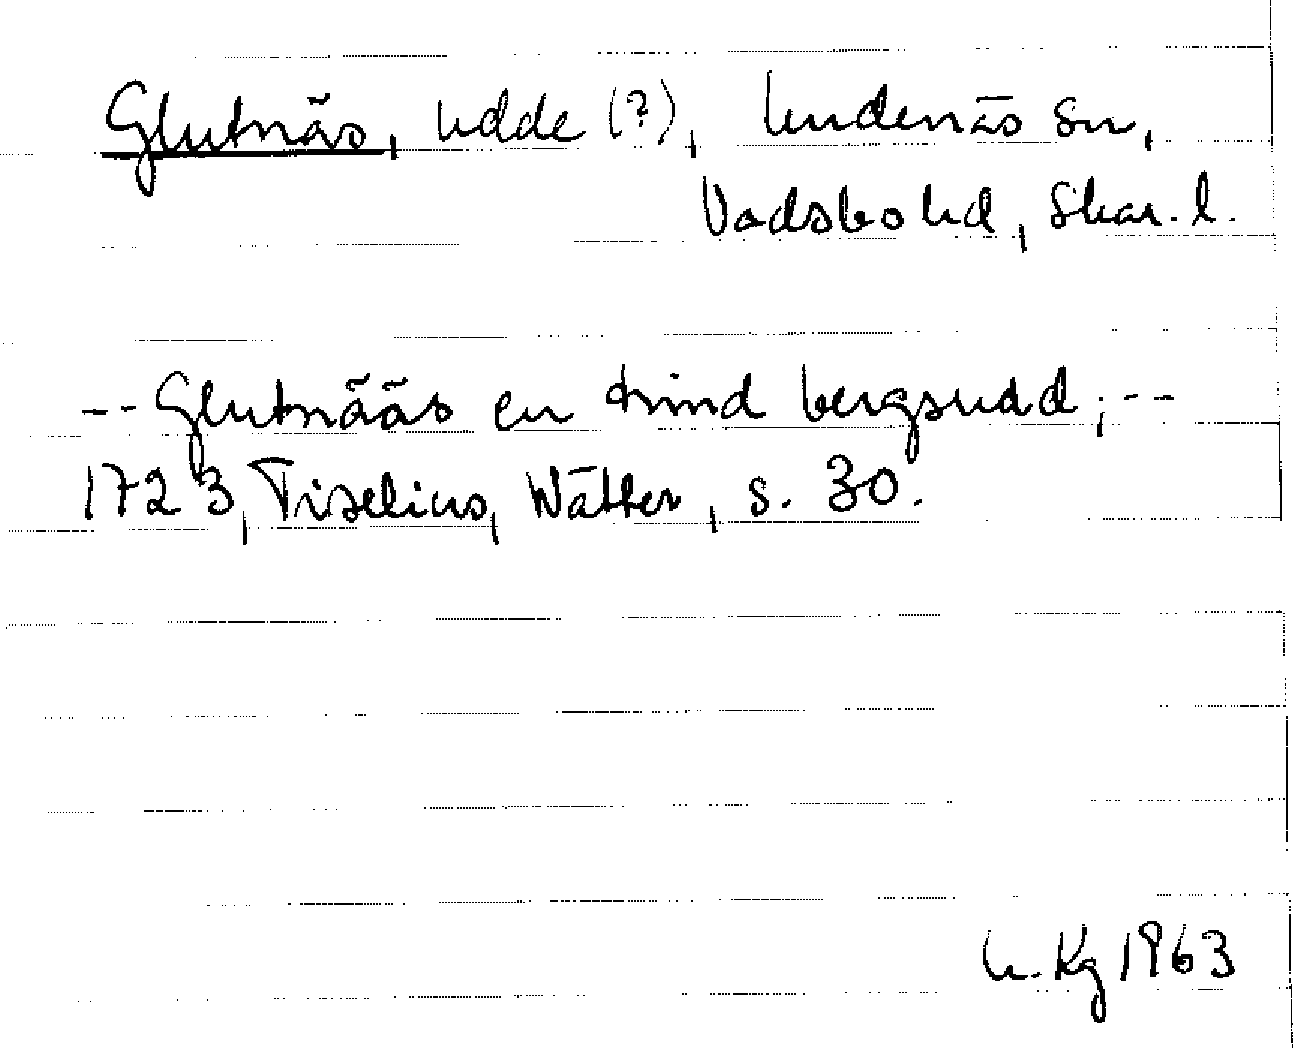 Glutnäs, udde (?), Undenäs sn,
Vadsbo hd, Skar. l.
-- Glutnääs en trind bergsudd; --
1723, Tiselius, Wätter, s. 30.
Kg 1963